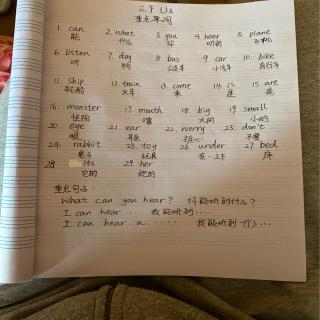 三下 U3
重点单词
1. can 2. what 3. you 4. hear 5. plane
能 什么 你 听的 飞机
6. listen 7. dog 8. bus 9. car 10. bike
听 狗 公交车 小汽车 自行车
11. ship 12. train 13. come 14. is 15. are
轮船 火车 来 是 是
16. monster 17. mouth 18. big 19. small
怪物 嘴 大的 小的
20. eye 21. ear 22. worry 23. don't
眼 耳朵 担心 不要
24. rabbit 25. toy 26. under 27. bed
兔子 玩具 在…之下 床
28 its 29. her
它的 她的
重点句子:
What can you hear? 你能听到什么?
I can hear ... 我能听到 ...
I can hear a ..... 我能听到一个...